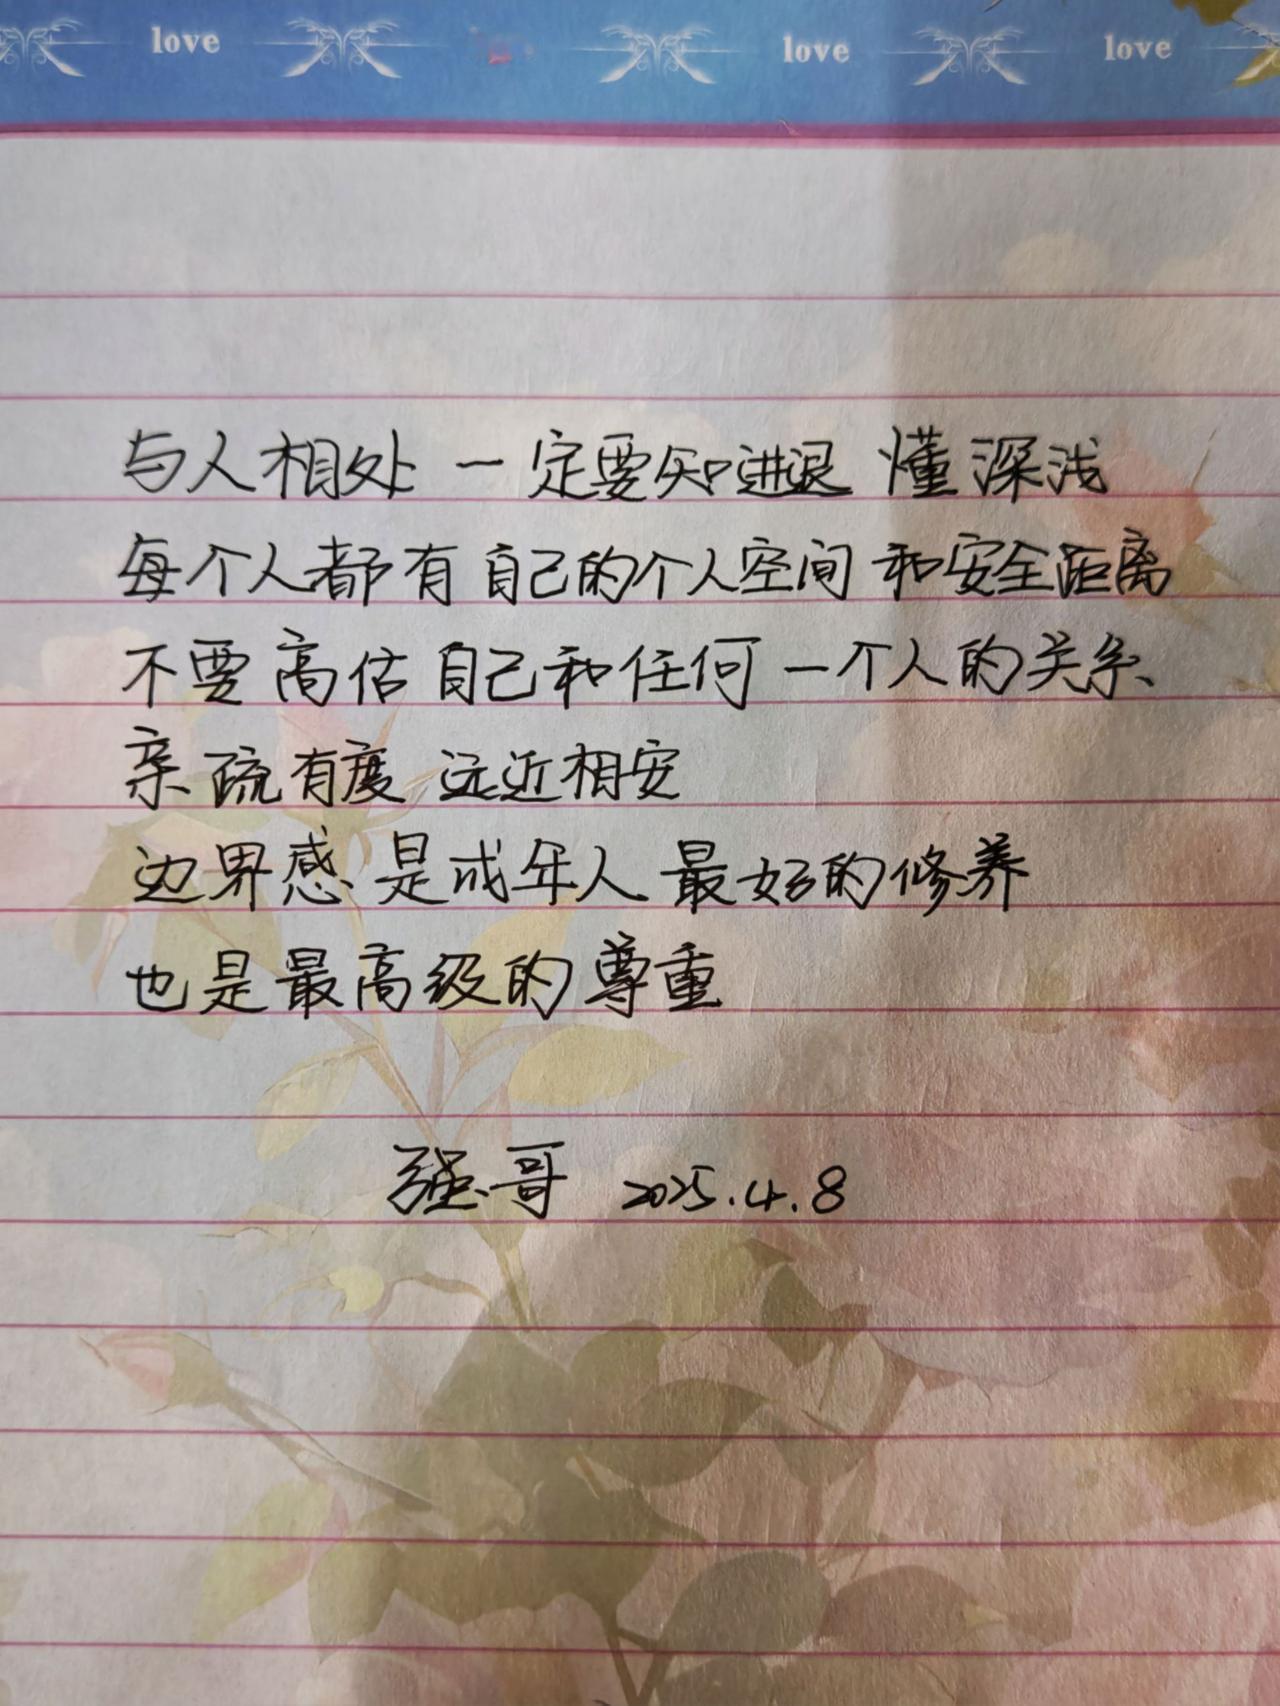 love love love
与人相处 一定要知进退 懂深浅
每个人都有自己的个人空间 和安全距离
不要高估自己和任何一个人的关系
亲疏有度 远近相安
边界感是成年人最好的修养
也是最高级的尊重
强哥 2025.4.8